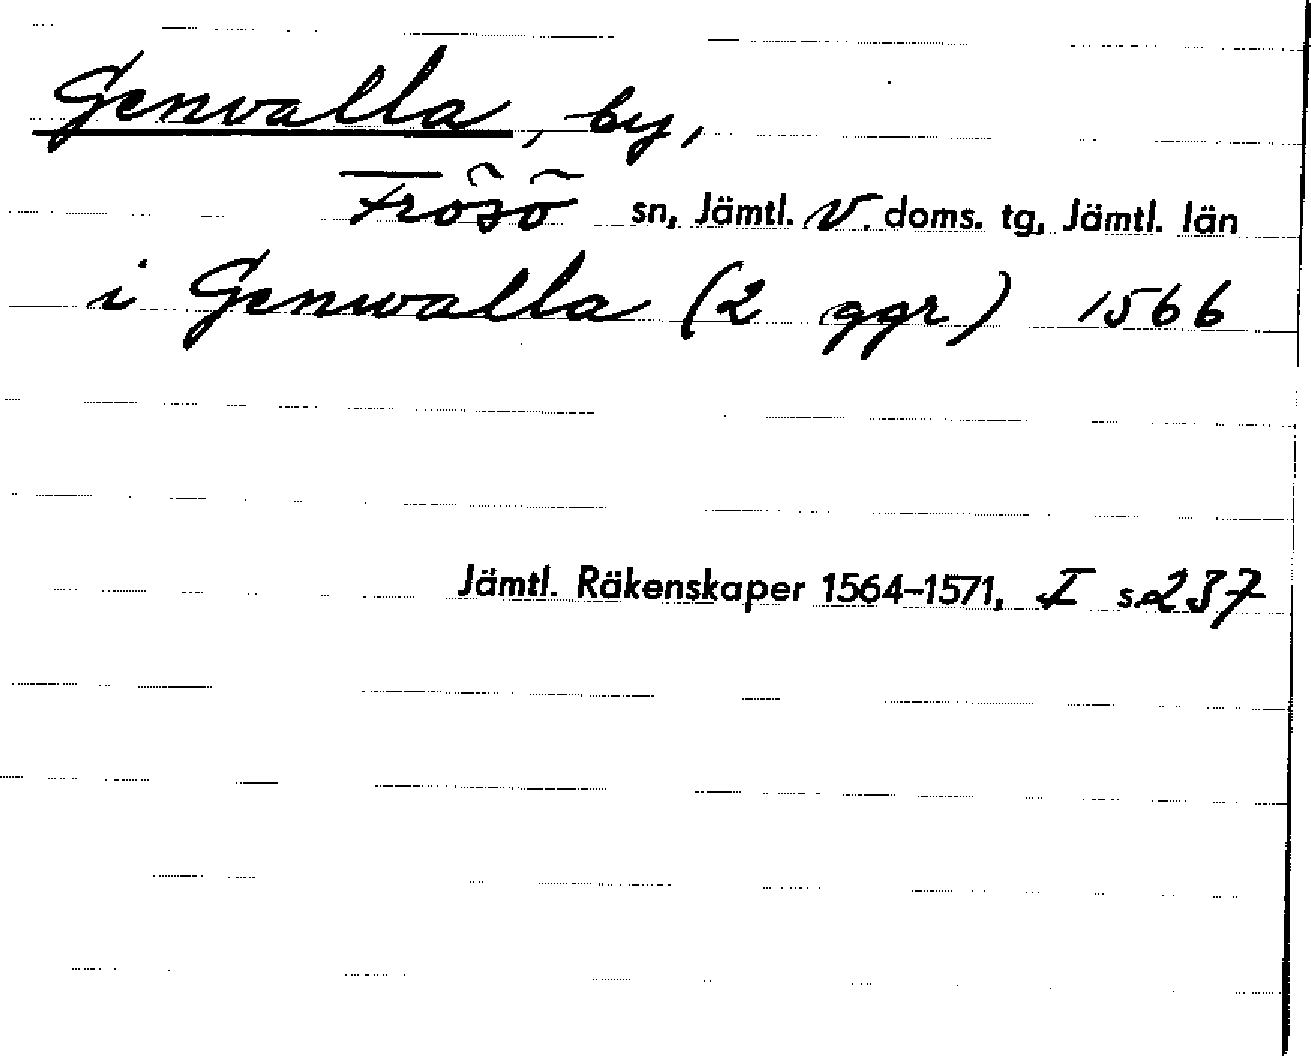 Genvalla, by,
Frösö sn, Jämtl. V. doms. tg, Jämtl. län
i Genwalla (2 ggr) 1566
Jämtl. Räkenskaper 1564–1571, I s. 237